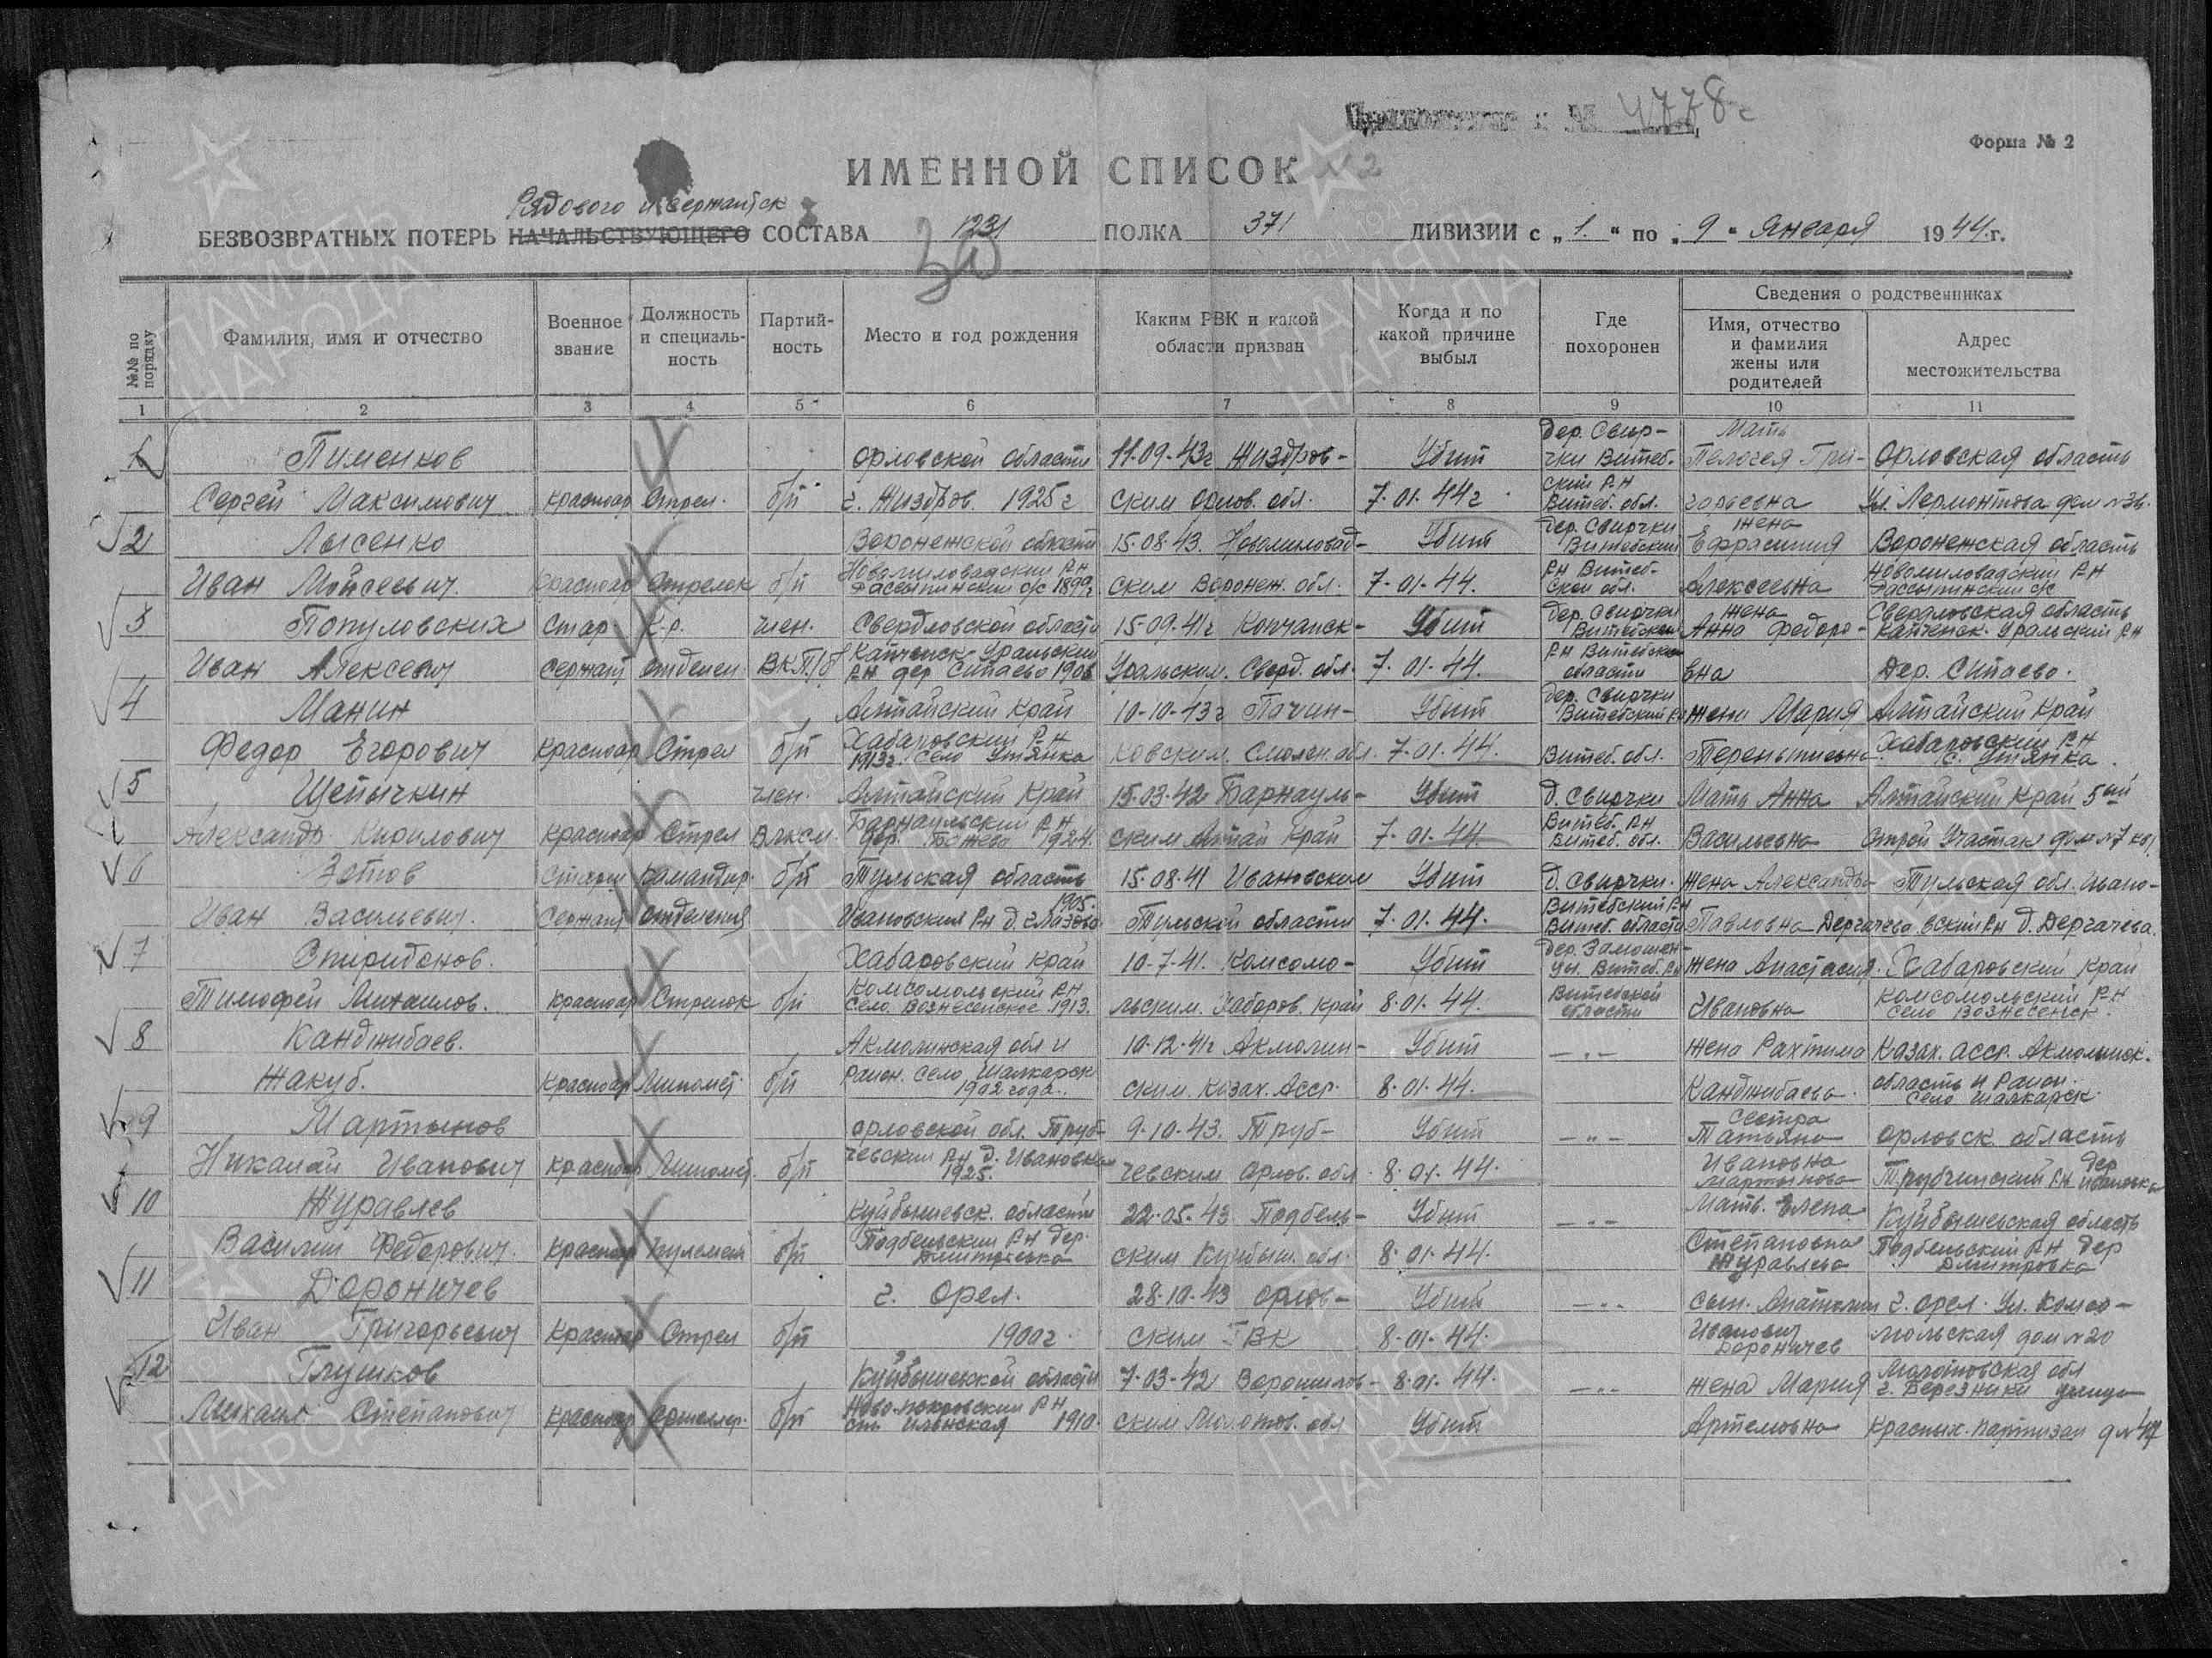 4778с
Форма № 2
ИМЕННОЙ СПИСОК №2
Рядового и сержантск
БЕЗВОЗВРАТНЫХ ПОТЕРЬ НАЧАЛЬСТВУЮЩЕГО СОСТАВА 1231 ПОЛКА 371 ДИВИЗИИ с „1." по „9" Января 1944 г.
№№ по порядку
Фамилия, имя и отчество
Военное звание
Должность и специаль-ность
Партий-ность
Место и год рождения
Каким РВК и какой области призван
Когда и по какой причине выбыл
Где похоронен
Сведения о родственниках
Имя, отчество и фамилия жены или родителей
Адрес местожительства
1 2 3 4 5 6 7 8 9 10 11
1 Пименков Орловской области 11-09-43г Жиздров- Убит Дер. Свир-чки Витеб- Мать Пелогея Гри- Орловская область
Сергей Максимович красноар Стрел. б/п г. Жиздров. 1925г ским Орлов. обл. 7-01-44г ский Р-Н Витеб. обл. горьевна Ул. Лермонтова дом №36.
2 Лысенко Воронежской области 15-08-43. Новомиловад- Убит Дер. Свирчки Витебский жена Ефрасиния Воронежская область
Иван Мойсеевич. Красноар Стрелок б/п Новомиловадский Р-Н Фасситинский с/с 1899г. ским Воронеж. обл. 7-01-44. Р-Н Витеб-ской обл. Алексеевна Новомиловадский Р-Н с/с
3 Популовских Стар К.р. член. Свердловской области 15-09-41г Копчанск- Убит Дер. Свирчки Витебский жена Анна Федоро- Свердловская область Уральский Р-Н
Иван Алексеевич Сержант отделен. ВКП/б Уральский Р-Н дер. Ситаево 1906 Уральским. Сверд. обл. 7-01-44. Р-Н Витебской области вна Дер. Ситаево.
4 Манин Алтайский Край 10-10-43г Пачин- Убит Дер. Свирчки Витебский Р-Н жена Мария Алтайский Край
Федор Егорович красноар Стрел б/п Хабаровский Р-Н 1913г. Село Утянка ковским. Смолен. обл. 7-01-44. Витеб. обл. Терентьевна. Хабаровский Р-Н с. Утянка.
5 Щепычкин член. Алтайский Край 15-03-42г Барнауль- Убит д. Свирчки Мать Анна Алтайский Край 5ый
Александр Кирилович красноар Стрел Влксм. Барнаульский Р-Н дер. Бажево 1924. ским Алтай Край 7-01-44. Витеб. Р-Н Витеб. обл. Васильевна строй Участак дом №7
6 Зотов Старш Командир. б/п Тульская область 15-08-41 Ивановским Убит д. Свирчки. жена Александра Тульская обл. Ивано-
Иван Васильевич. Сержант отделения 1905. Ивановский Р-Н д. Глазово Тульской области 7-01-44. Витебский Р-Н Витеб. области Павловна Дергачева вский Р-Н д. Дергачева.
7 Спиридонов. Хабаровский Край 10-7-41. Комсомо- Убит Дер. Витеб. Р-Н жена Анастасия. Хабаровский Край
Тимофей Михаилов. красноар Стрелок б/п Комсомольский Р-Н Село Вознесенское. 1913. льским. Хабаров. Край 8-01-44. Витебской области Ивановна Комсомольский Р-Н село Вознесенск.
8 Канджибаев. Акмолинская обл и 10-12-41г Акмолин- Убит — " — жена Рахтима Казах. АССР. Акмолинск.
Жакуб. красноар Миномет. б/п Район. Село Шалкарск 1902 года. ским. Казах. Асср. 8-01-44. Канджибаева. область и Район. Село Шалкарск.
9 Мартынов Орловской обл. Труб- 9-10-43. Труб- Убит — " — Сестра Татьяна Орловск. область
Никалай Иванович красноар Миномет. б/п чевский Р-Н д. Ивановка 1925. чевским Орлов. обл. 8-01-44. Ивановна Мартынова Трубчинский Р-Н Дер Ивановка
10 Журавлев Куйбышевск. области 22-05-43. Подбель- Убит — " — Мать. Елена Куйбышевская область
Василий Федорович. красноар Пулемет б/п Подбельский Р-Н Дер. Дмитровка ским Куйбыш. обл. 8-01-44. Степановна Журавлева Подбельский Р-Н Дер Дмитровка
11 Дороничев г. Орел. 28-10-43 Орлов- Убит — " — сын. Анатолий г. Орел. Ул. Комсо-
Иван Григорьевич Красноар Стрел б/п 1900г. ским ГВК 8-01-44. Иванович Дороничев мольская дом №20
12 Глушков Куйбышевской области 7-03-42 Ворошилов- 8-01-44. — " — жена Мария Молотовская обл г. Березники улица
Михаил Степанович красноар б/п Новопокровский Р-Н ст. Ильинская 1910. ским Молотов. обл Убит Артемовна Красных-партизан
ПАМЯТЬ НАРОДА